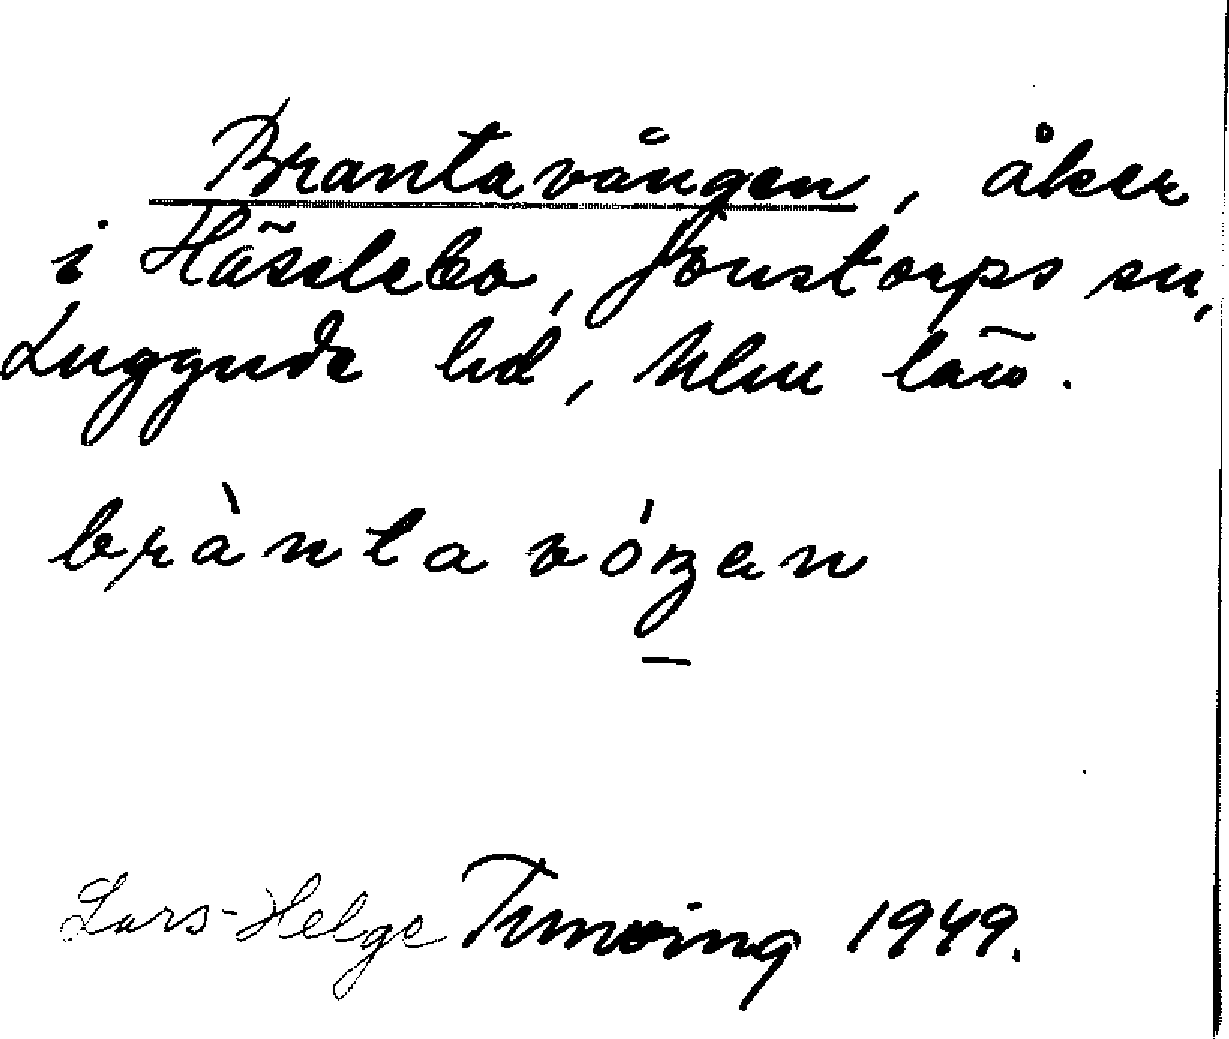 Brantavången, åker
i Häselebo, Jonstorps sn,
Luggude hd, Mlm län.
bràntavóŋen
Lars-Helge Tunving 1949.